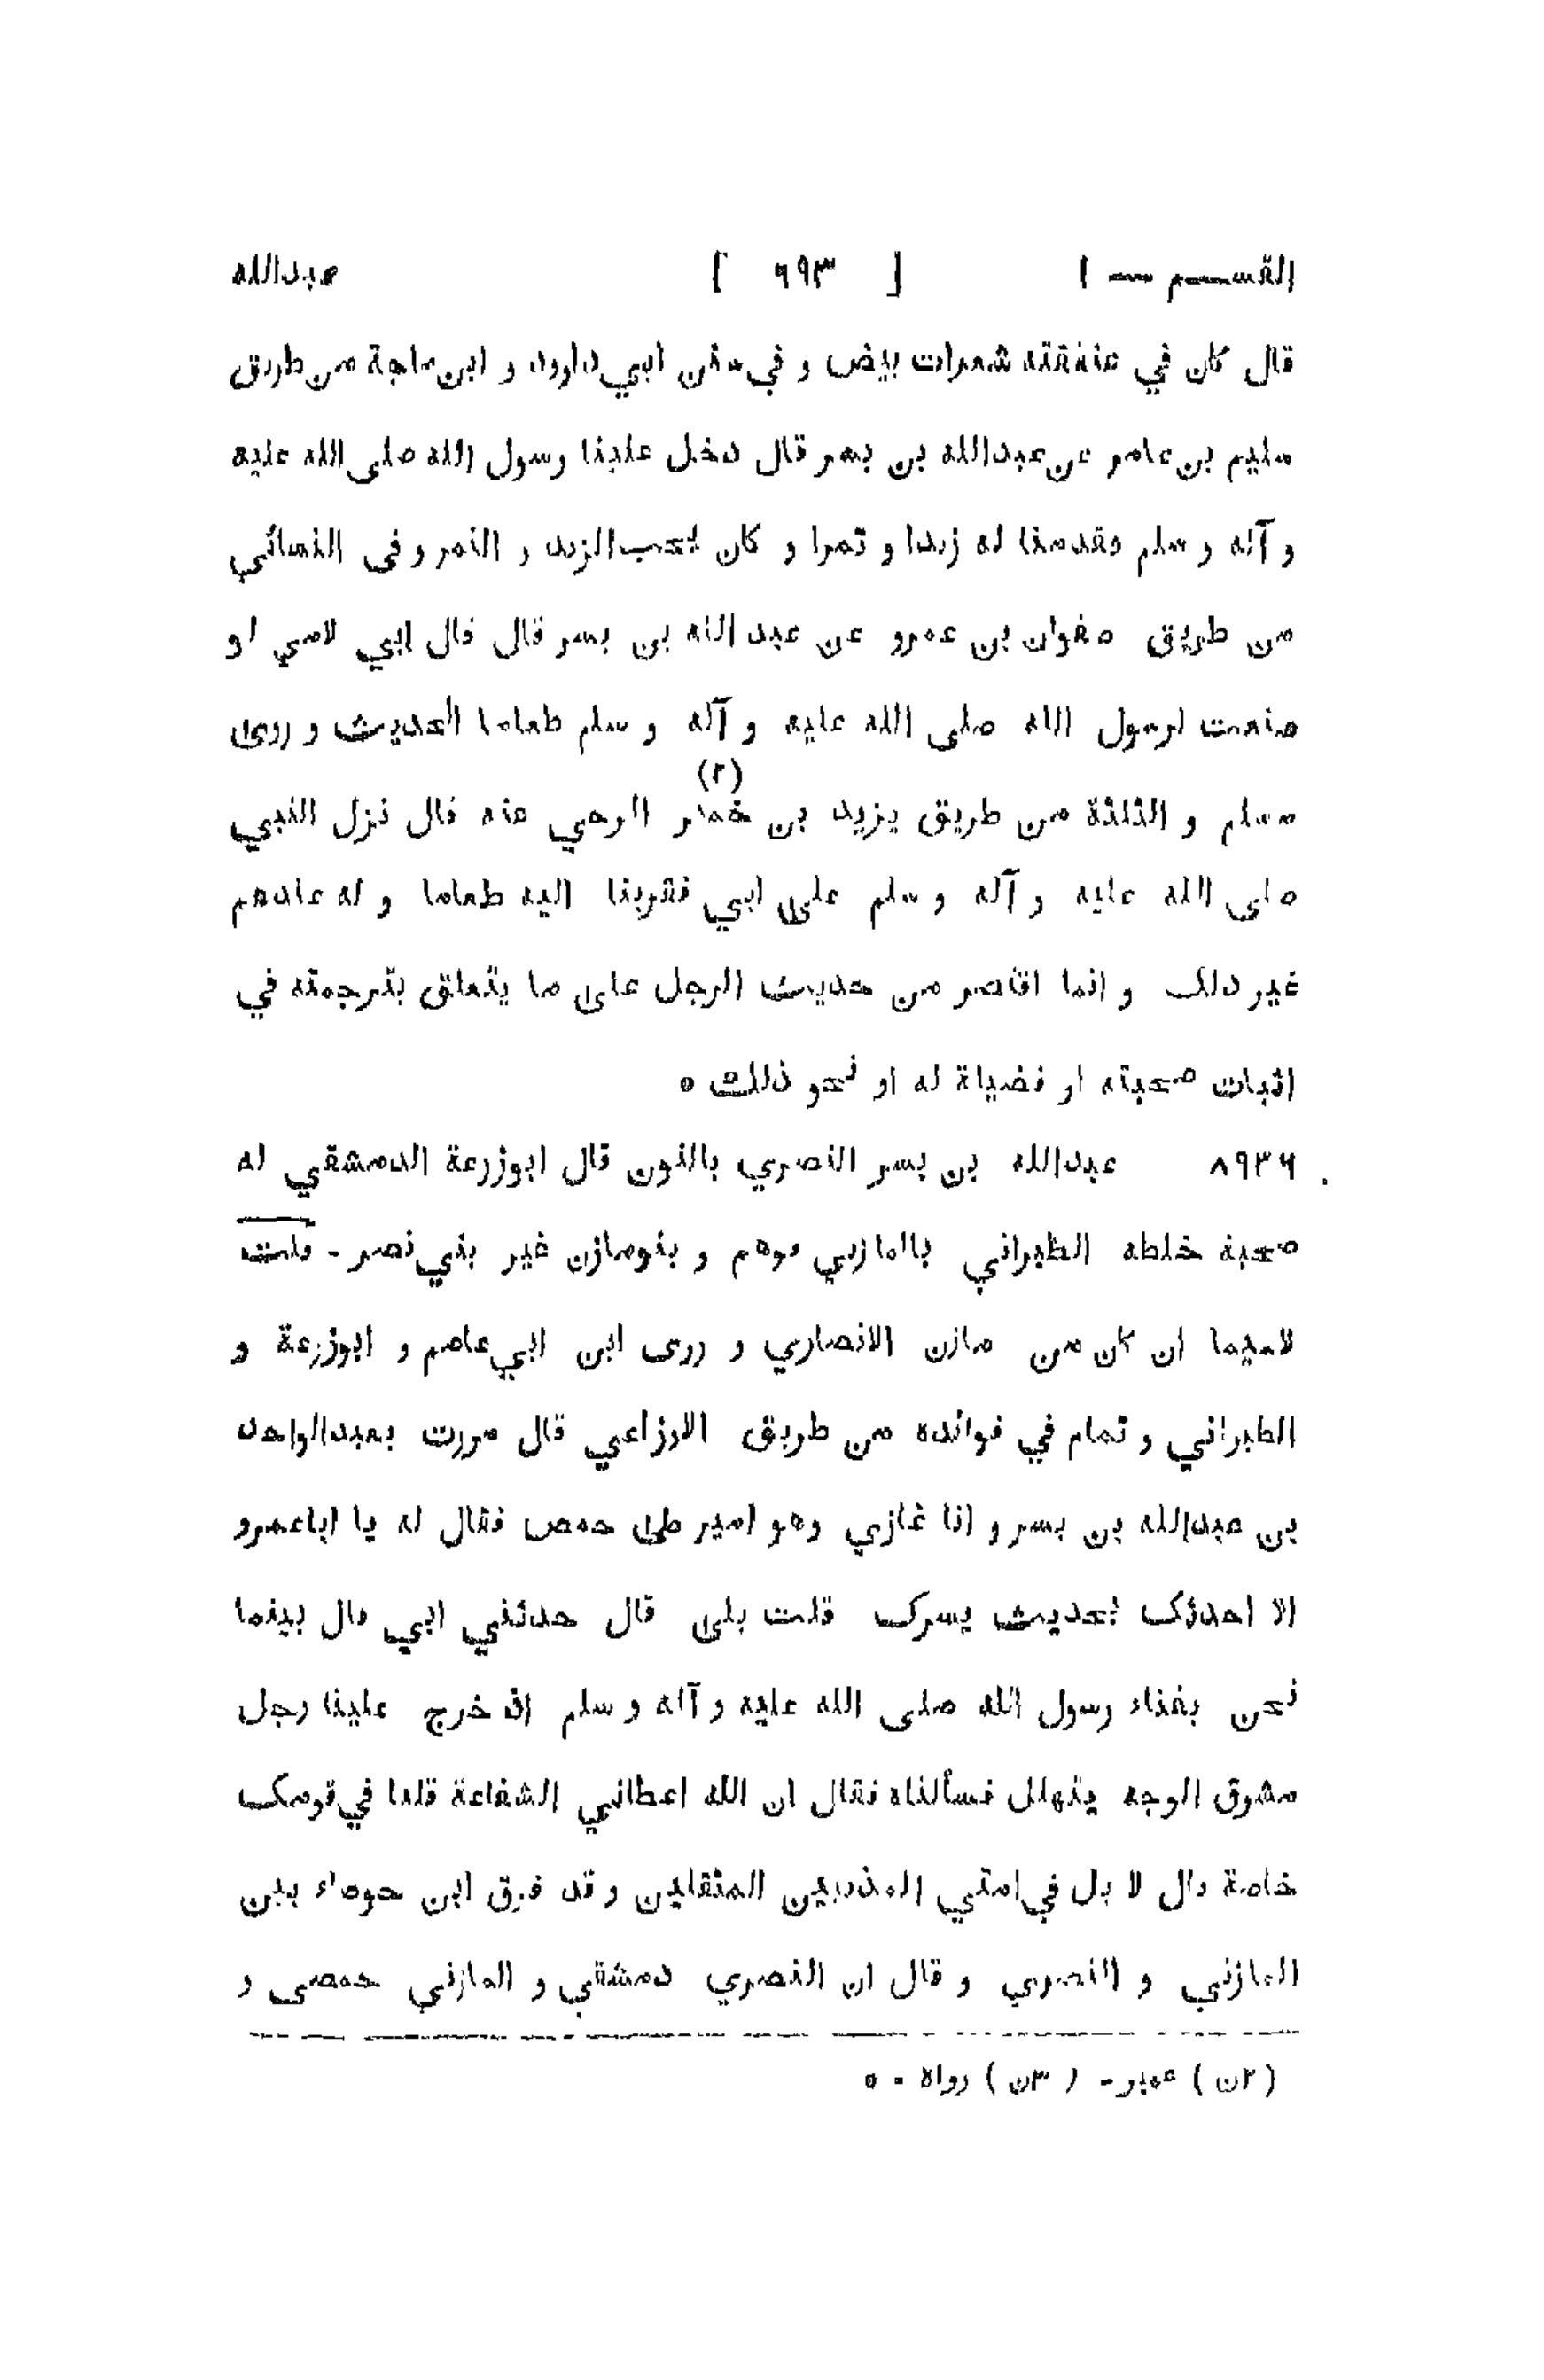 القسم — ١ [ ٦٩٣ ] عبدالله
قال كان في عنفقته شعرات بيض و في سنن ابي داوود و ابن ماجة من طريق
سليم بن عامر عن عبدالله بن بسر قال دخل علينا رسول الله صلى الله عليه
و آله و سلم فقدمنا له زبدا و تمرا و كان يحب الزبد و التمر و في النسائي
من طريق صفوان بن عمرو عن عبد الله بن بسر قال قال ابي لامي لو
صنعت لرسول الله صلى الله عليه و آله و سلم طعاما الحديث و روى
مسلم و الثلثة من طريق يزيد بن خمير (٢) الرحبي عنه قال نزل النبي
صلى الله عليه و آله و سلم على ابي فقربنا اليه طعاما و له عندهم
غير ذلك و انما اقتصر من حديث الرجل على ما يتعلق بترجمته في
اثبات صحبته او فضيلة له او نحو ذلك ٥
٨٩٣٦ عبدالله بن بسر النصري بالنون قال ابوزرعة الدمشقي له
صحبة خلطه الطبراني بالمازني فوهم و بنومازن غير بني نصر - قلت
لاسيما ان كان من مازن الانصاري و روى ابن ابي عاصم و ابوزرعة و
الطبراني و تمام في فوائده من طريق الاوزاعي قال مررت بعبدالواحد
بن عبدالله بن بسر و انا غازي وهو امير على حمص فقال له يا اباعمرو
الا احدثك بحديث يسرك قلت بلى قال حدثني ابي قال بينما
نحن بفناء رسول الله صلى الله عليه و آله و سلم اذ خرج علينا رجل
مشرق الوجه يتهلل فسألناه فقال ان الله اعطاني الشفاعة قلنا في قومك
خاصة قال لا بل في امتي المذنبين المثقلين و قد فرق ابن جوصاء بين
المازني و النصري و قال ان النصري دمشقي و المازني حمصي و
(٢ن) عمير - (٣ن) رواه - ٥